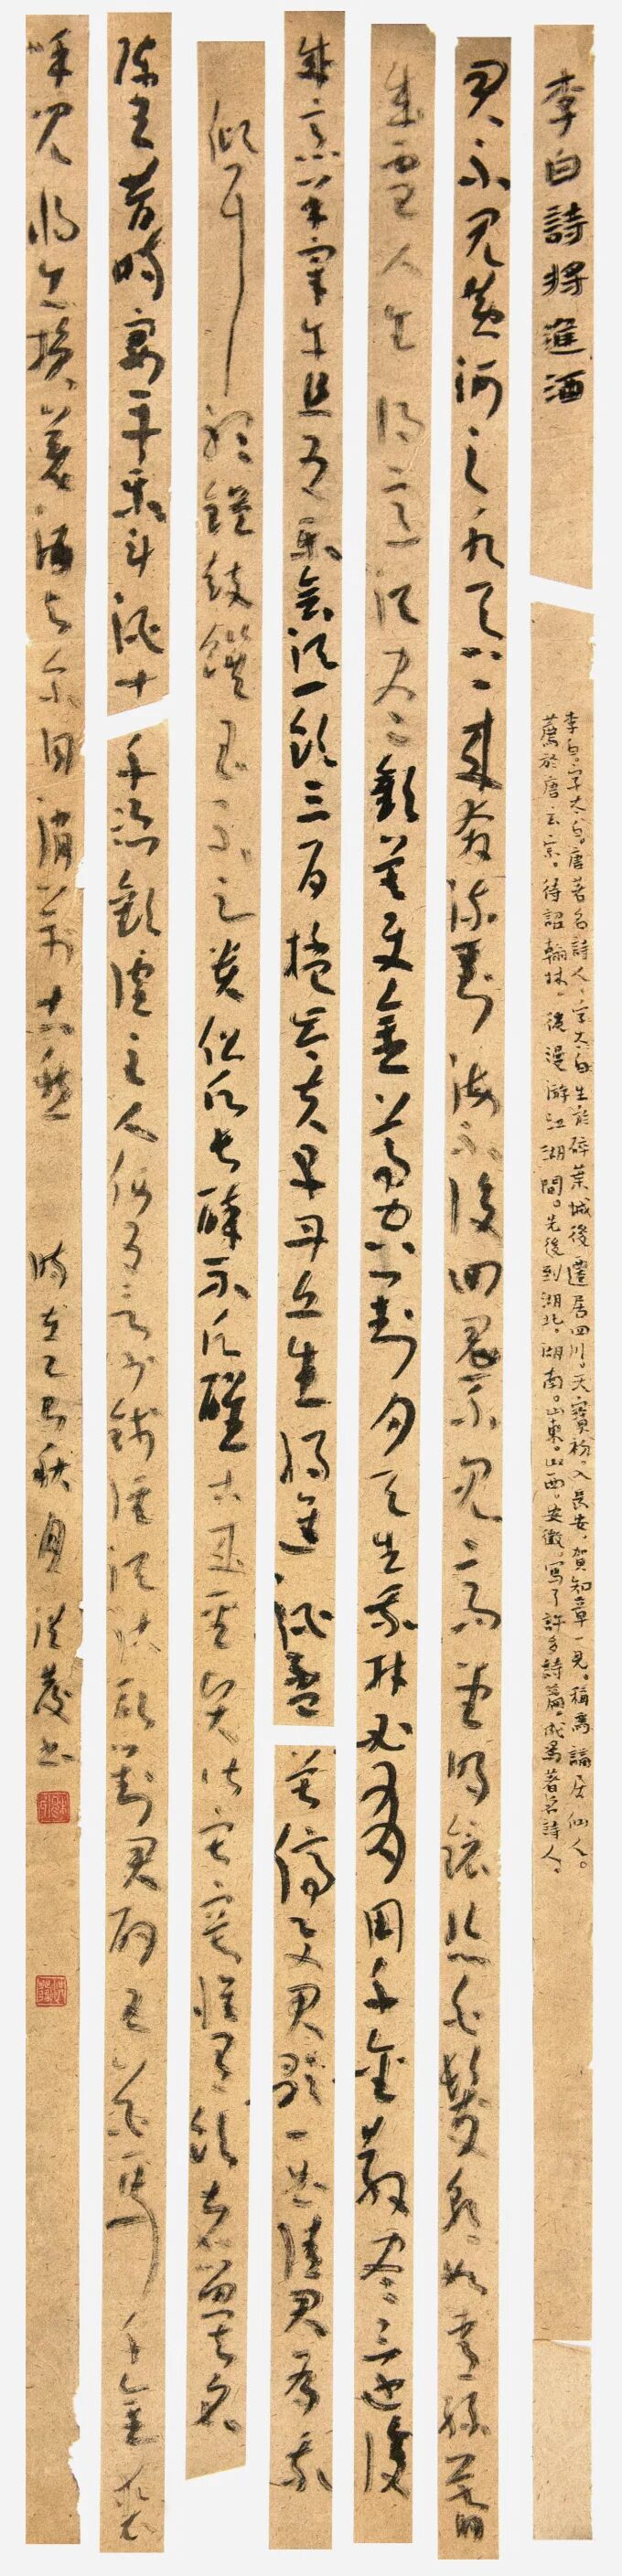 李白詩將進酒
李白字太白唐著名詩人,字太白生於碎葉城後遷居四川。天寶初,入長安,賀知章一見,稱為謫居仙人。
薦於唐玄宗。待詔翰林。後漫游江湖間。先後到湖北,湖南。山東。山西。安徽,寫了許多詩篇,成為著名詩人。
君不見黃河之水天上來奔流到海不復回君不見高堂明鏡悲白髮朝如青絲暮
成雪人生得意須盡歡莫使金樽空對月天生我材必有用千金散盡還復
來烹羊宰牛且為樂會須一飲三百杯岑夫子丹丘生將進酒杯莫停與君歌一曲請君為我
傾耳聽鐘鼓饌玉不足貴但願長醉不願醒古來聖賢皆寂寞惟有飲者留其名
陳王昔時宴平樂斗酒十千恣歡謔主人何為言少錢徑須沽取對君酌五花馬千金裘
呼兒將出換美酒與爾同消萬古愁 時在乙巳秋月 洪發書